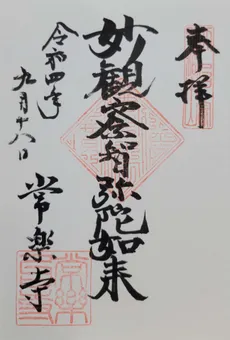 奉拝
妙観察智弥陀如来
常楽寺
令和四年
九月十八日
常樂